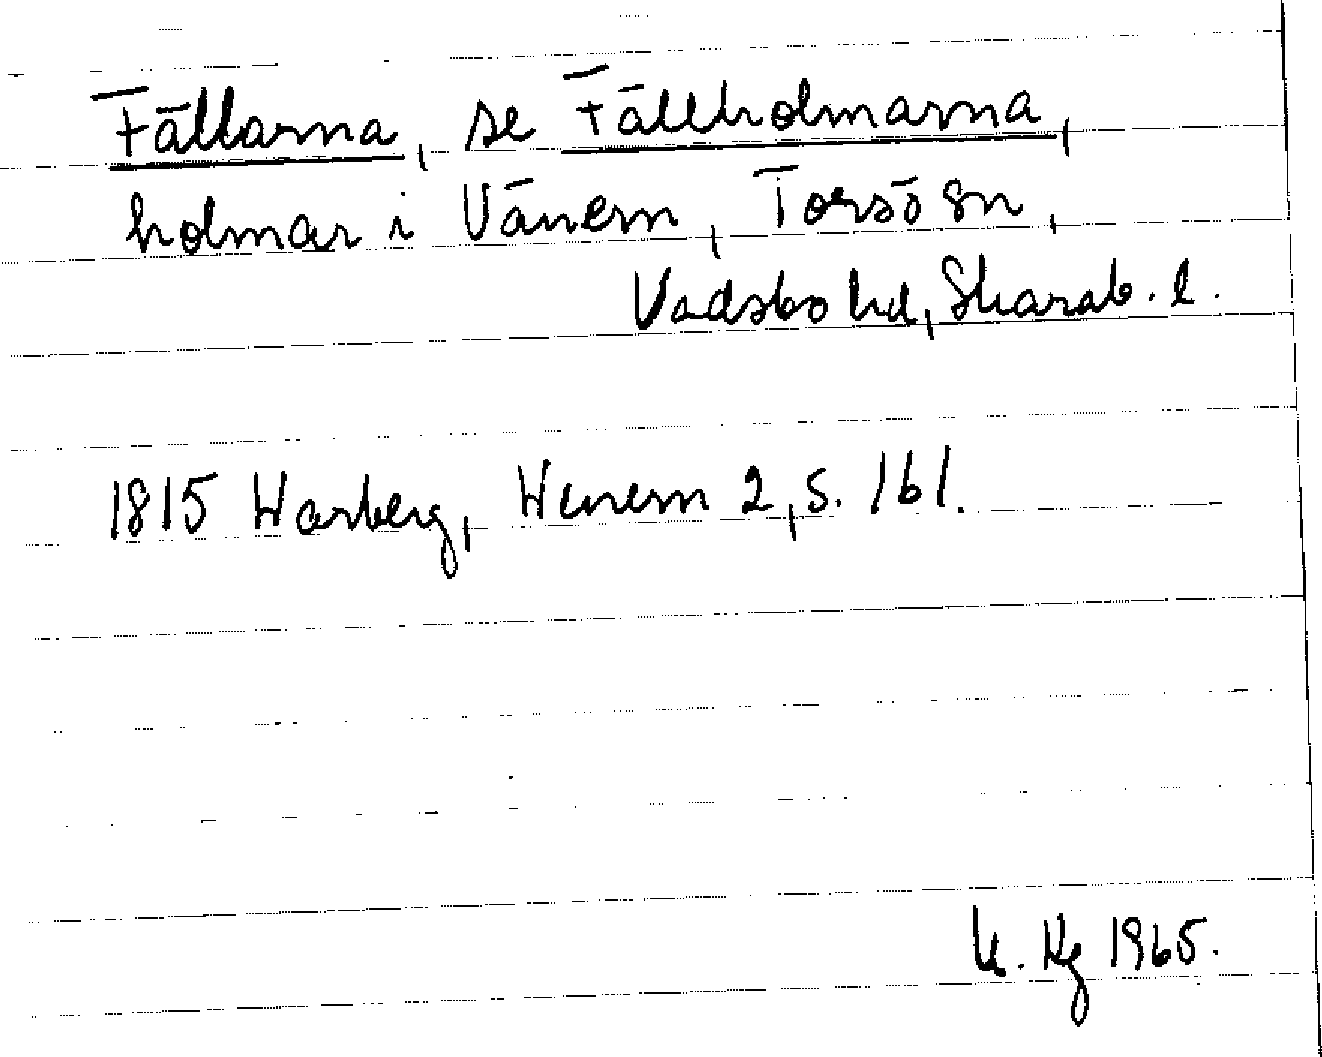 Fällarna, se Fällholmarna,
holmar i Vänern, Torsö sn,
Vadsbo hd, Skarab. l.
1815 Warberg, Wenern 2, s. 161.
K. Kg 1965.